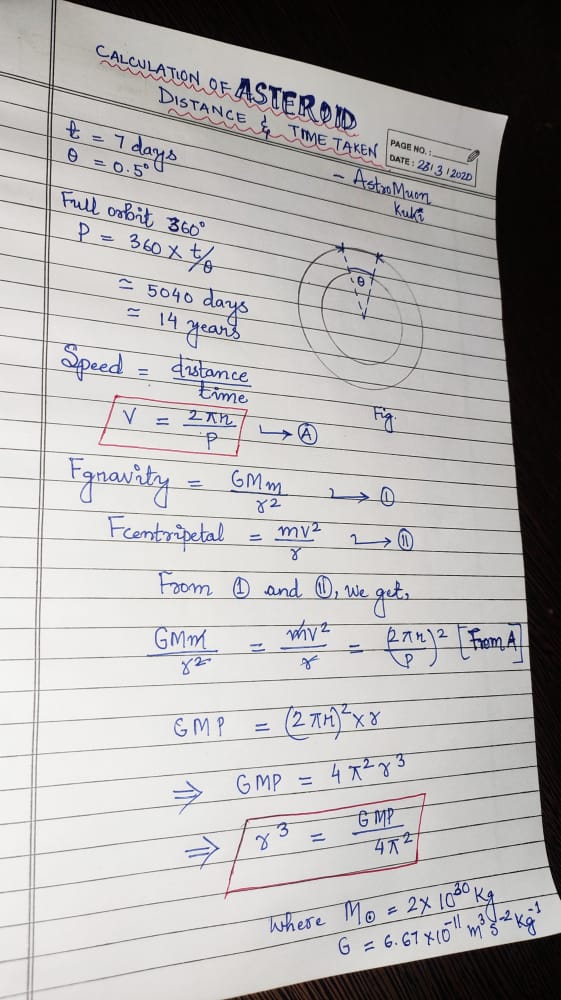 CALCULATION OF ASTEROID
DISTANCE & TIME TAKEN
PAGE NO.:
DATE: 28/3/2020
- AstroMuon
Kuki
t = 7 days
θ = 0.5°
Full orbit 360°
P = 360 × t/θ
≃ 5040 days
≃ 14 years
θ
Fig.
Speed = distance/time
V = 2πr/P → Ⓐ
Fgravity = GMm/r² → Ⓘ
Fcentripetal = mv²/r → Ⓘⓘ
From Ⓘ and Ⓘⓘ, we get,
GMm/r² = mv²/r = (2πr/P)² [From A]
GMP = (2πr)² × r
⇒ GMP = 4π²r³
⇒ r³ = GMP/4π²
where M⊙ = 2 × 10³⁰ Kg
G = 6.67 × 10⁻¹¹ m³ s⁻² Kg⁻¹